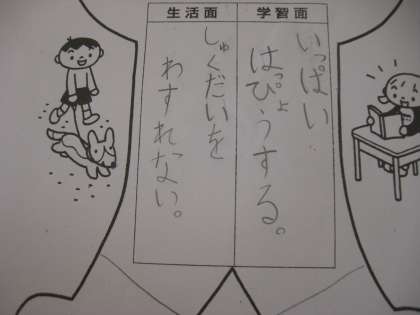 学習面
いっぱい
はっぴょうする。
生活面
しゅくだいを
わすれない。